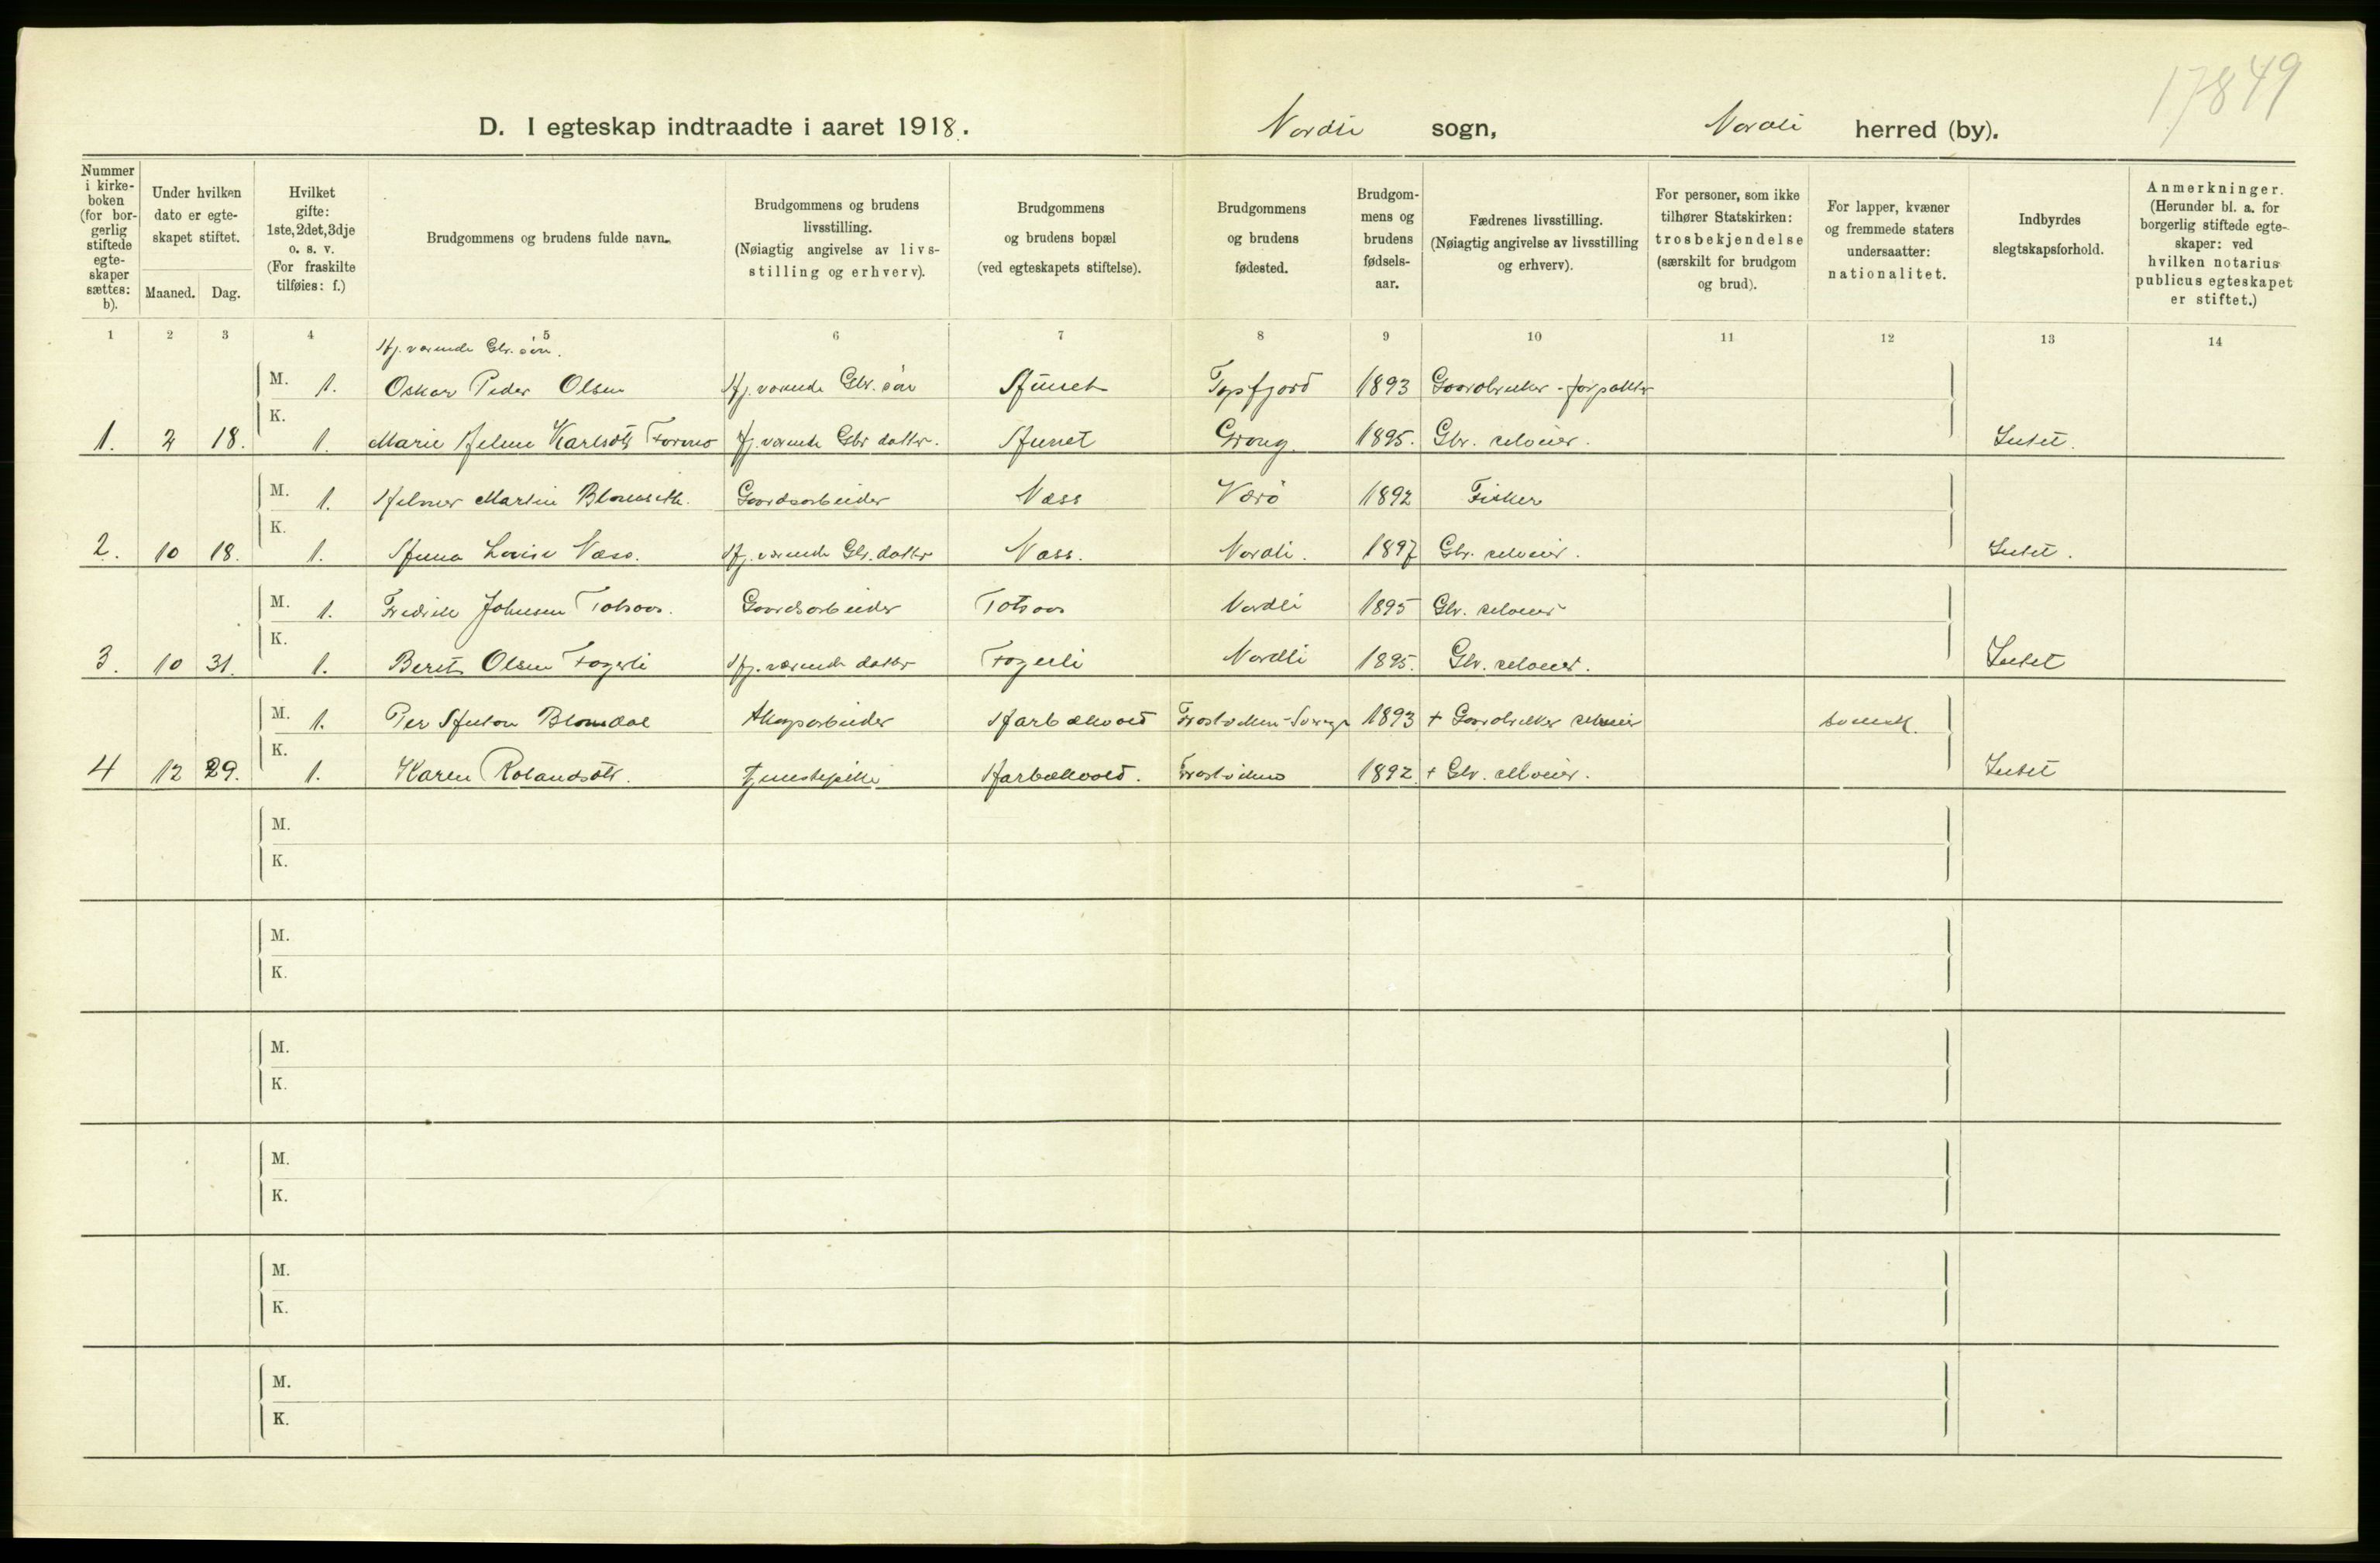 17849
D. I egteskap indtraadte i aaret 1918. Nordli sogn, Nordli herred (by).
Nummer i kirke-boken (for bor-gerlig stiftede egte-skaper sættes: b).
Under hvilken dato er egte-skapet stiftet.
Maaned. Dag.
Hvilket gifte: 1ste, 2det, 3dje o. s. v. (For fraskilte tilføies: f.)
Brudgommens og brudens fulde navn.
Brudgommens og brudens livsstilling. (Nøiagtig angivelse av livs-stilling og erhverv).
Brudgommens og brudens bopæl (ved egteskapets stiftelse).
Brudgommens og brudens fødested.
Brudgom-mens og brudens fødsels-aar.
Fædrenes livsstilling. (Nøiagtig angivelse av livsstilling og erhverv).
For personer, som ikke tilhører Statskirken: trosbekjendelse (særskilt for brudgom og brud).
For lapper, kvæner og fremmede staters undersaatter: nationalitet.
Indbyrdes slegtskapsforhold.
Anmerkninger. (Herunder bl. a. for borgerlig stiftede egte-skaper: ved hvilken notarius publicus egteskapet er stiftet.)
1 2 3 4 5 6 7 8 9 10 11 12 13 14
Hj. værende Gbr. søn.
M. 1. Oskar Peder Olsen Hj. værende Gbr. søn Tunnsjø 1893 Gaardbruker - forpakter
K.
1. 2 18. 1. Marie Helene Karlsdtr Formo Hj. værende Gbr datter. Grong. 1895. Gbr. selveier. Intet.
M. 1. Hilmer Martin Blomseth. Gaardsarbeider Næss Værø 1892 Fisker
K.
2. 10 18. 1. Lovise Næss. Hj. værende Gbr. datter Næss. Nordli. 1897 Gbr. selveier. Intet.
M. 1. Fredrik Johnsen Totsaas. Gaardsarbeider Totsaas Nordli 1895 Gbr. selveier
K.
3. 10 31. 1. Berit Olsen Fagerli Hj. værende datter Fagerli Nordli 1895. Gbr. selveier. Intet
M. 1. Per Blomdal Skogsarbeider Harbækvold Frostviken - Sverige 1893 + Gaardbruker selveier svensk.
K.
4 12 29. 1. Karen Rolandsdtr. Tjenestepike Harbækvold. Frostviken 1892. + Gbr. selveier. Intet
M.
K.
M.
K.
M.
K.
M.
K.
M.
K.
M.
K.